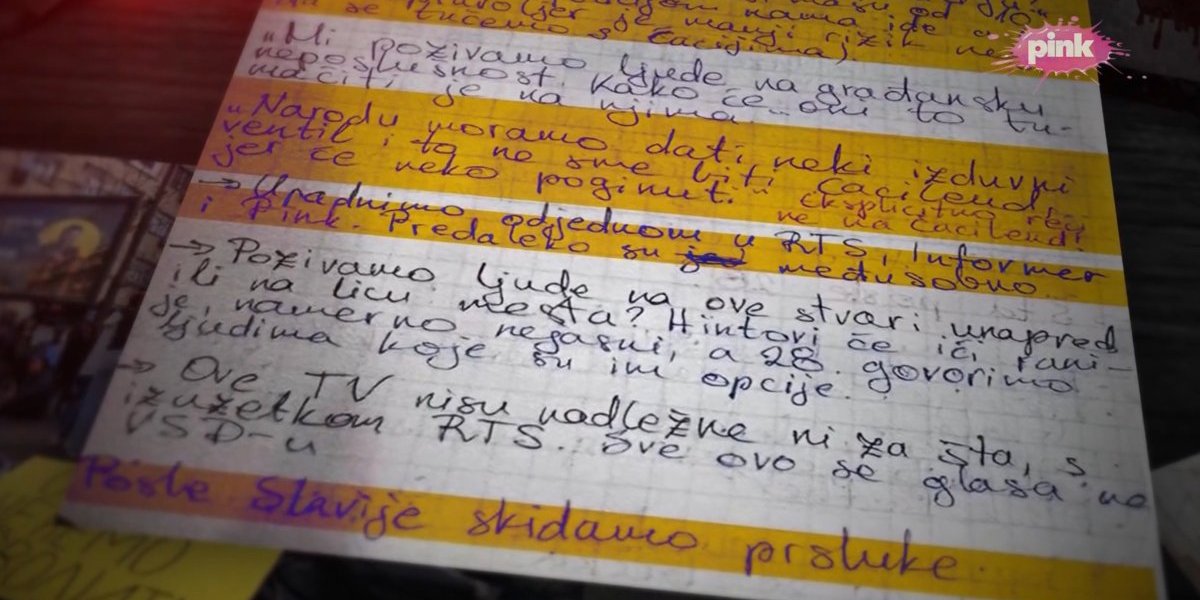 nama ide
se tučemo s ćacijima)
„Mi pozivamo ljude na građansku
neposlušnost. Kako će oni to tu-
mačiti, je na njima
„Narodu moramo dati neki izduvni
ventil i to ne sme biti Ćacilend
jer će neko poginuti." Eksplicitno reći
ne na Ćacilend!
→ Uradnimo odjednom u RTS, Informer
i Pink. Predaleko su međusobno.
→ Pozivamo ljude na ove stvari unapred
ili na licu mesta? Hintovi će ići rani-
je, namerno negasni, a 28. govorimo
ljudima koje su im opcije.
→ Ove TV nisu nadležne ni za šta, s
izuzetkom RTS. Sve ovo se glasa na
VSD-u
Posle Slavije skidamo prsluke.
pink